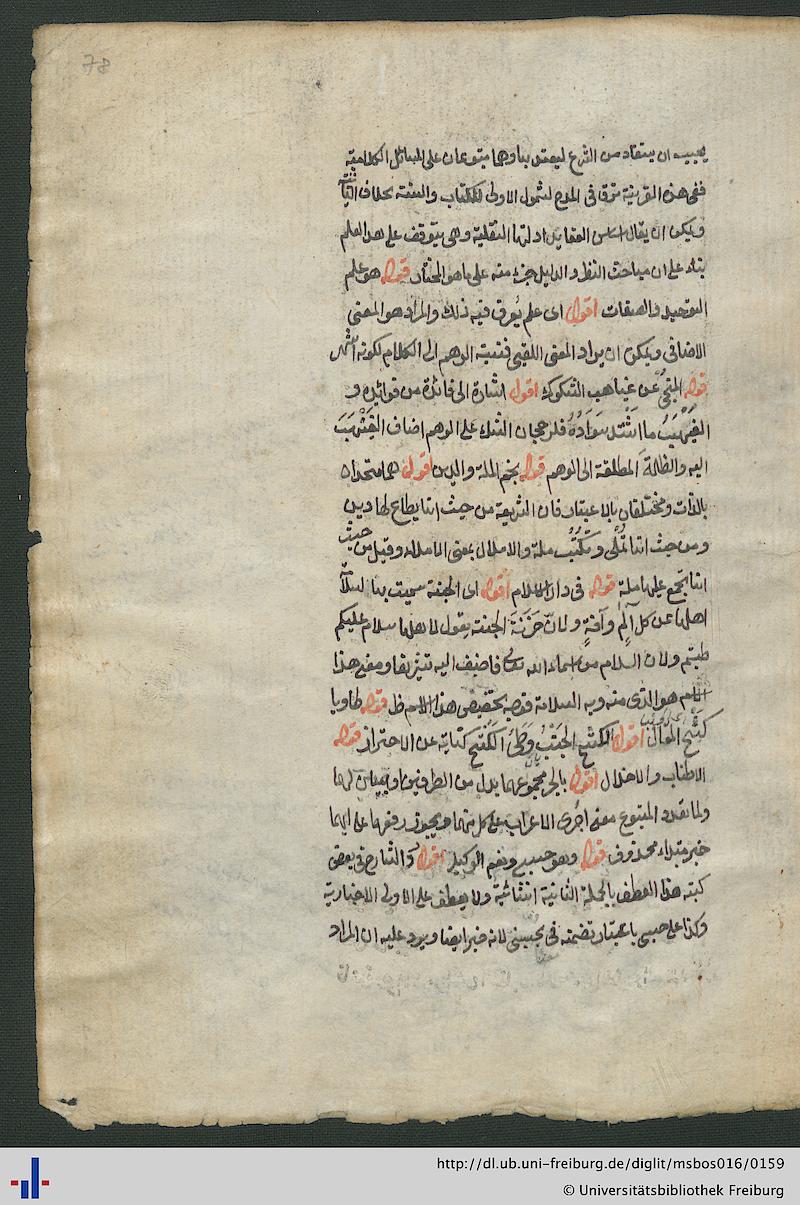 78
يجب ان يستفاد من الشرع ليعتد بها وهما يتوقفان على المسائل الكلامية
ففى هذه القرينة ترق فى المدح لشمول الاولى للكتاب والسنة بخلاف الثانية
ويمكن ان يقال اساس العقايد ادلتها النقلية وهى يتوقف على هذا العلم
بناء على ان مباحث النظر والدليل جزء منه على ما هو المختار قوله هو علم
التوحيد والصفات اقول اى علم يُعرف فيه ذلك والمراد هو المعنى
الاضافى ويمكن ان يراد المعنى اللقبى فنسبة الوهم الى الكلام لكونه اشهر
قوله المنجى عن غياهب الشكوك اقول اشارة الى فائدة من فوائده و
الغَيْهَبُ ما اشْتَد سَوَادُهُ فلرجحان الشك على الوهم اضاف الغَيْهَبَ
اليه والظلمةَ المطلقة الى الوهم قوله نجم الملة والدين اقول هما متحدان
بالذات ومختلفان بالاعتبار فان الشريعة من حيث انها يطاع لها دين
ومن حيث انها تُمْلى وتُكْتُب ملة والاملال بمعنى الاملاء وقيل من حيث
انها تجمع عليها ملة قوله فى دار السلام اقول اى الجنة سميت بها لسلامة
اهلها عن كل اَلَمٍ وآفةٍ ولانّ خَزَنَةَ الجنة يقول لاهلها سلام عليكم
طبتم ولان السلام من اسماء الله تعالى فاضيف اليه تشريفا ومعنى هذا
الاسم هو الذى منه وبه السلامة فوجه تخصيص هذا الاسم ظ قوله طاويا
كشح المقال اقول الكَشْحُ الجَنْبُ وَطَىُّ الكَشْحِ كناية عن الاحتراز قوله
الاطناب والاخلال اقول بالجر مجموعهما بدل من الطرفين او بيان لهما
ولما تعدد المتبوع معنى اُجْرِىَ الاعراب على كل منهما ويجوز رفعهما على انهما
خبر مبتداء محذوف قوله وهو حسبى ونعم الوكيل اقول ذ الشارح فى بعض
كتبه هذا العطف بالجملة الثانية انشائية ولا يعطف على الاولى الاخبارية
وكذا على حسبى باعتبار تضمنه فى يحسبنى لانه خبر ايضا ويرد عليه ان المراد
http://dl.ub.uni-freiburg.de/diglit/msbos016/0159
© Universitätsbibliothek Freiburg